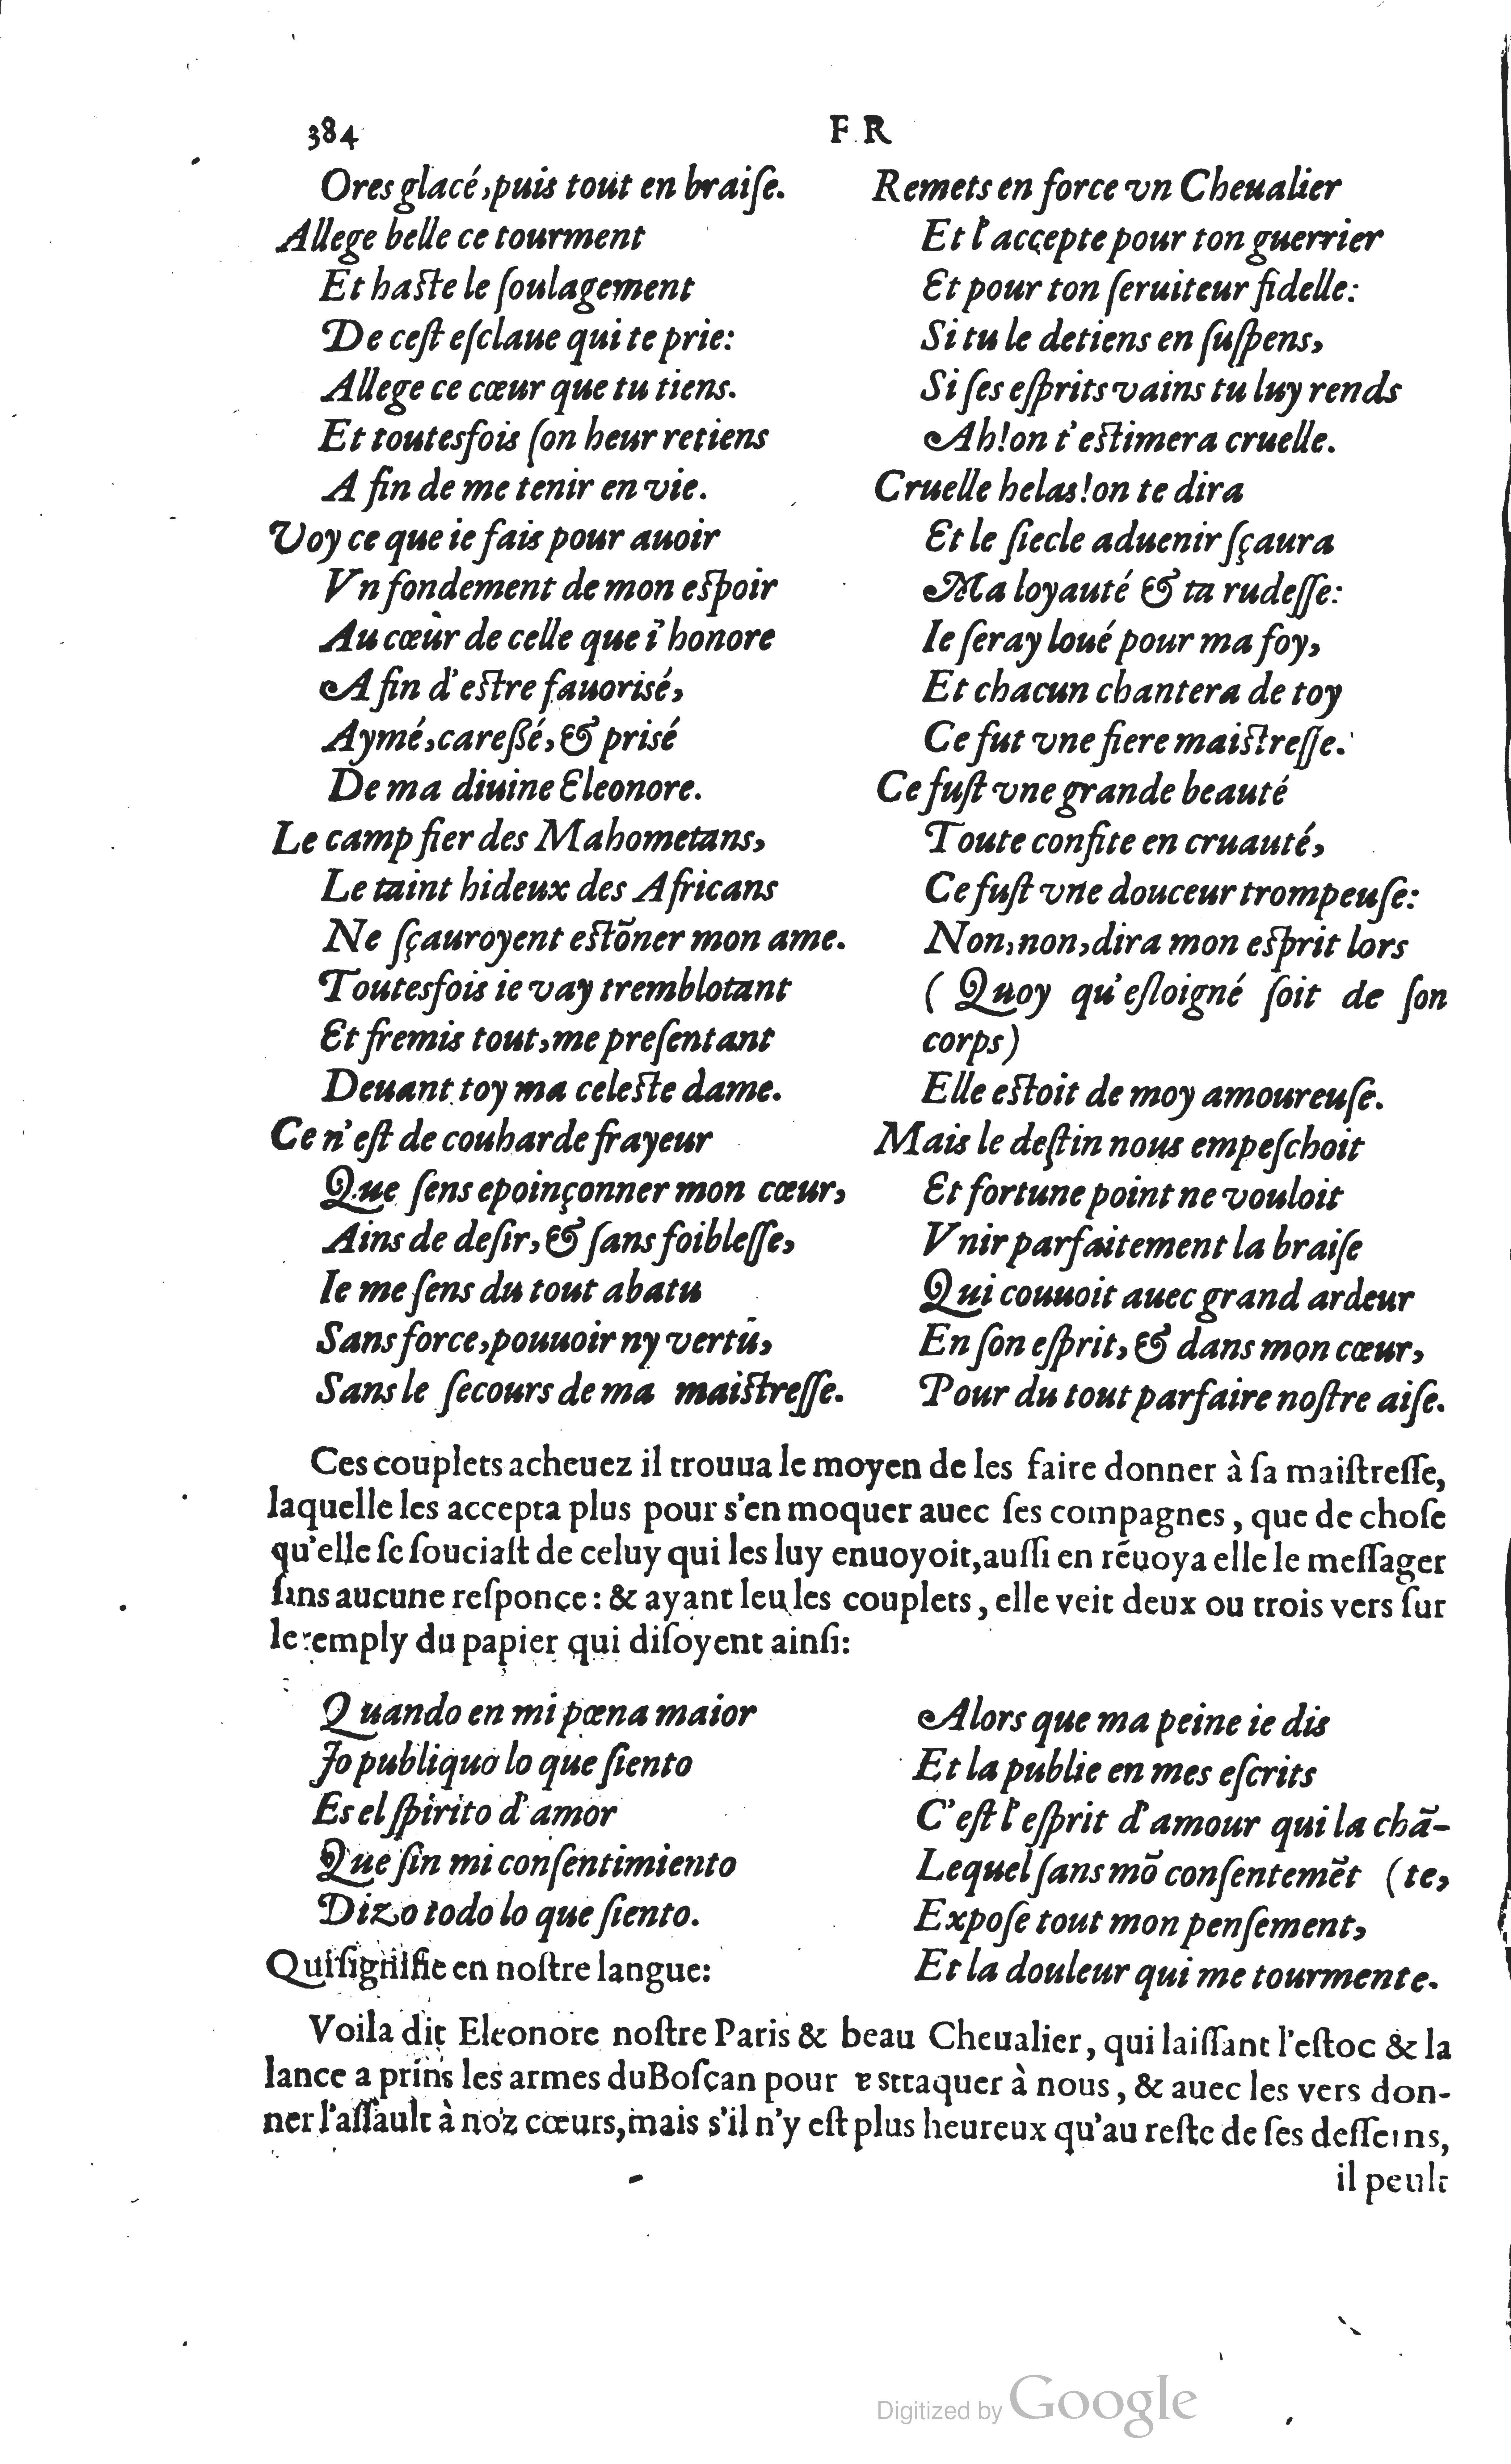 384
F R
Ores glacé, puis tout en braiſe.
Allege belle ce tourment
Et haſte le ſoulagement
De ceſt eſclaue qui te prie:
Allege ce cœur que tu tiens.
Et toutesfois ſon heur retiens
A fin de me tenir en vie.
Voy ce que ie fais pour auoir
Vn fondement de mon eſpoir
Au cœur de celle que i'honore
A fin d'eſtre fauorisé,
Aymé, careßé, & prisé
De ma diuine Eleonore.
Le camp fier des Mahometans,
Le taint hideux des Africans
Ne ſçauroyent eſtõner mon ame.
Toutesfois ie vay tremblotant
Et fremis tout, me preſentant
Deuant toy ma celeſte dame.
Ce n'eſt de couharde frayeur
Que ſens epoinçonner mon cœur,
Ains de deſir, & ſans foibleſſe,
Ie me ſens du tout abatu
Sans force, pouuoir ny vertu,
Sans le ſecours de ma maiſtreſſe.
Remets en force vn Cheualier
Et l'accepte pour ton guerrier
Et pour ton ſeruiteur fidelle:
Si tu le detiens en ſuſpens,
Si ſes eſprits vains tu luy rends
Ah! on t'eſtimera cruelle.
Cruelle helas! on te dira
Et le ſiecle aduenir ſçaura
Ma loyauté & ta rudeſſe:
Ie ſeray loué pour ma foy,
Et chacun chantera de toy
Ce fut vne fiere maiſtreſſe.
Ce fuſt vne grande beauté
Toute confite en cruauté,
Ce fuſt vne douceur trompeuſe:
Non, non, dira mon eſprit lors
( Quoy qu'eſloigné ſoit de ſon
corps)
Elle eſtoit de moy amoureuſe.
Mais le deſtin nous empeſchoit
Et fortune point ne vouloit
Vnir parfaitement la braiſe
Qui couuoit auec grand ardeur
En ſon eſprit, & dans mon cœur,
Pour du tout parfaire noſtre aiſe.
Ces couplets acheuez il trouua le moyen de les faire donner à ſa maiſtreſſe,
laquelle les accepta plus pour s'en moquer auec ſes compagnes, que de choſe
qu'elle ſe ſouciaſt de celuy qui les luy enuoyoit, auſſi en rẽuoya elle le meſſager
ſans aucune reſponce: & ayant leu les couplets, elle veit deux ou trois vers ſur
le remply du papier qui diſoyent ainſi:
Quando en mi pœna maior
Jo publiquo lo que ſiento
Es el ſpirito d'amor
Que ſin mi conſentimiento
Dizo todo lo que ſiento.
Qui ſignifie en noſtre langue:
Alors que ma peine ie dis
Et la publie en mes eſcrits
C'eſt l'eſprit d'amour qui la chã-
Lequel ſans mõ conſentemẽt (te,
Expoſe tout mon penſement,
Et la douleur qui me tourmente.
Voila dit Eleonore noſtre Paris & beau Cheualier, qui laiſſant l'eſtoc & la
lance a prins les armes du Boſcan pour attaquer à nous, & auec les vers don-
ner l'aſſault à noz cœurs, mais s'il n'y eſt plus heureux qu'au reſte de ſes deſſeins,
il peult
Digitized by Google